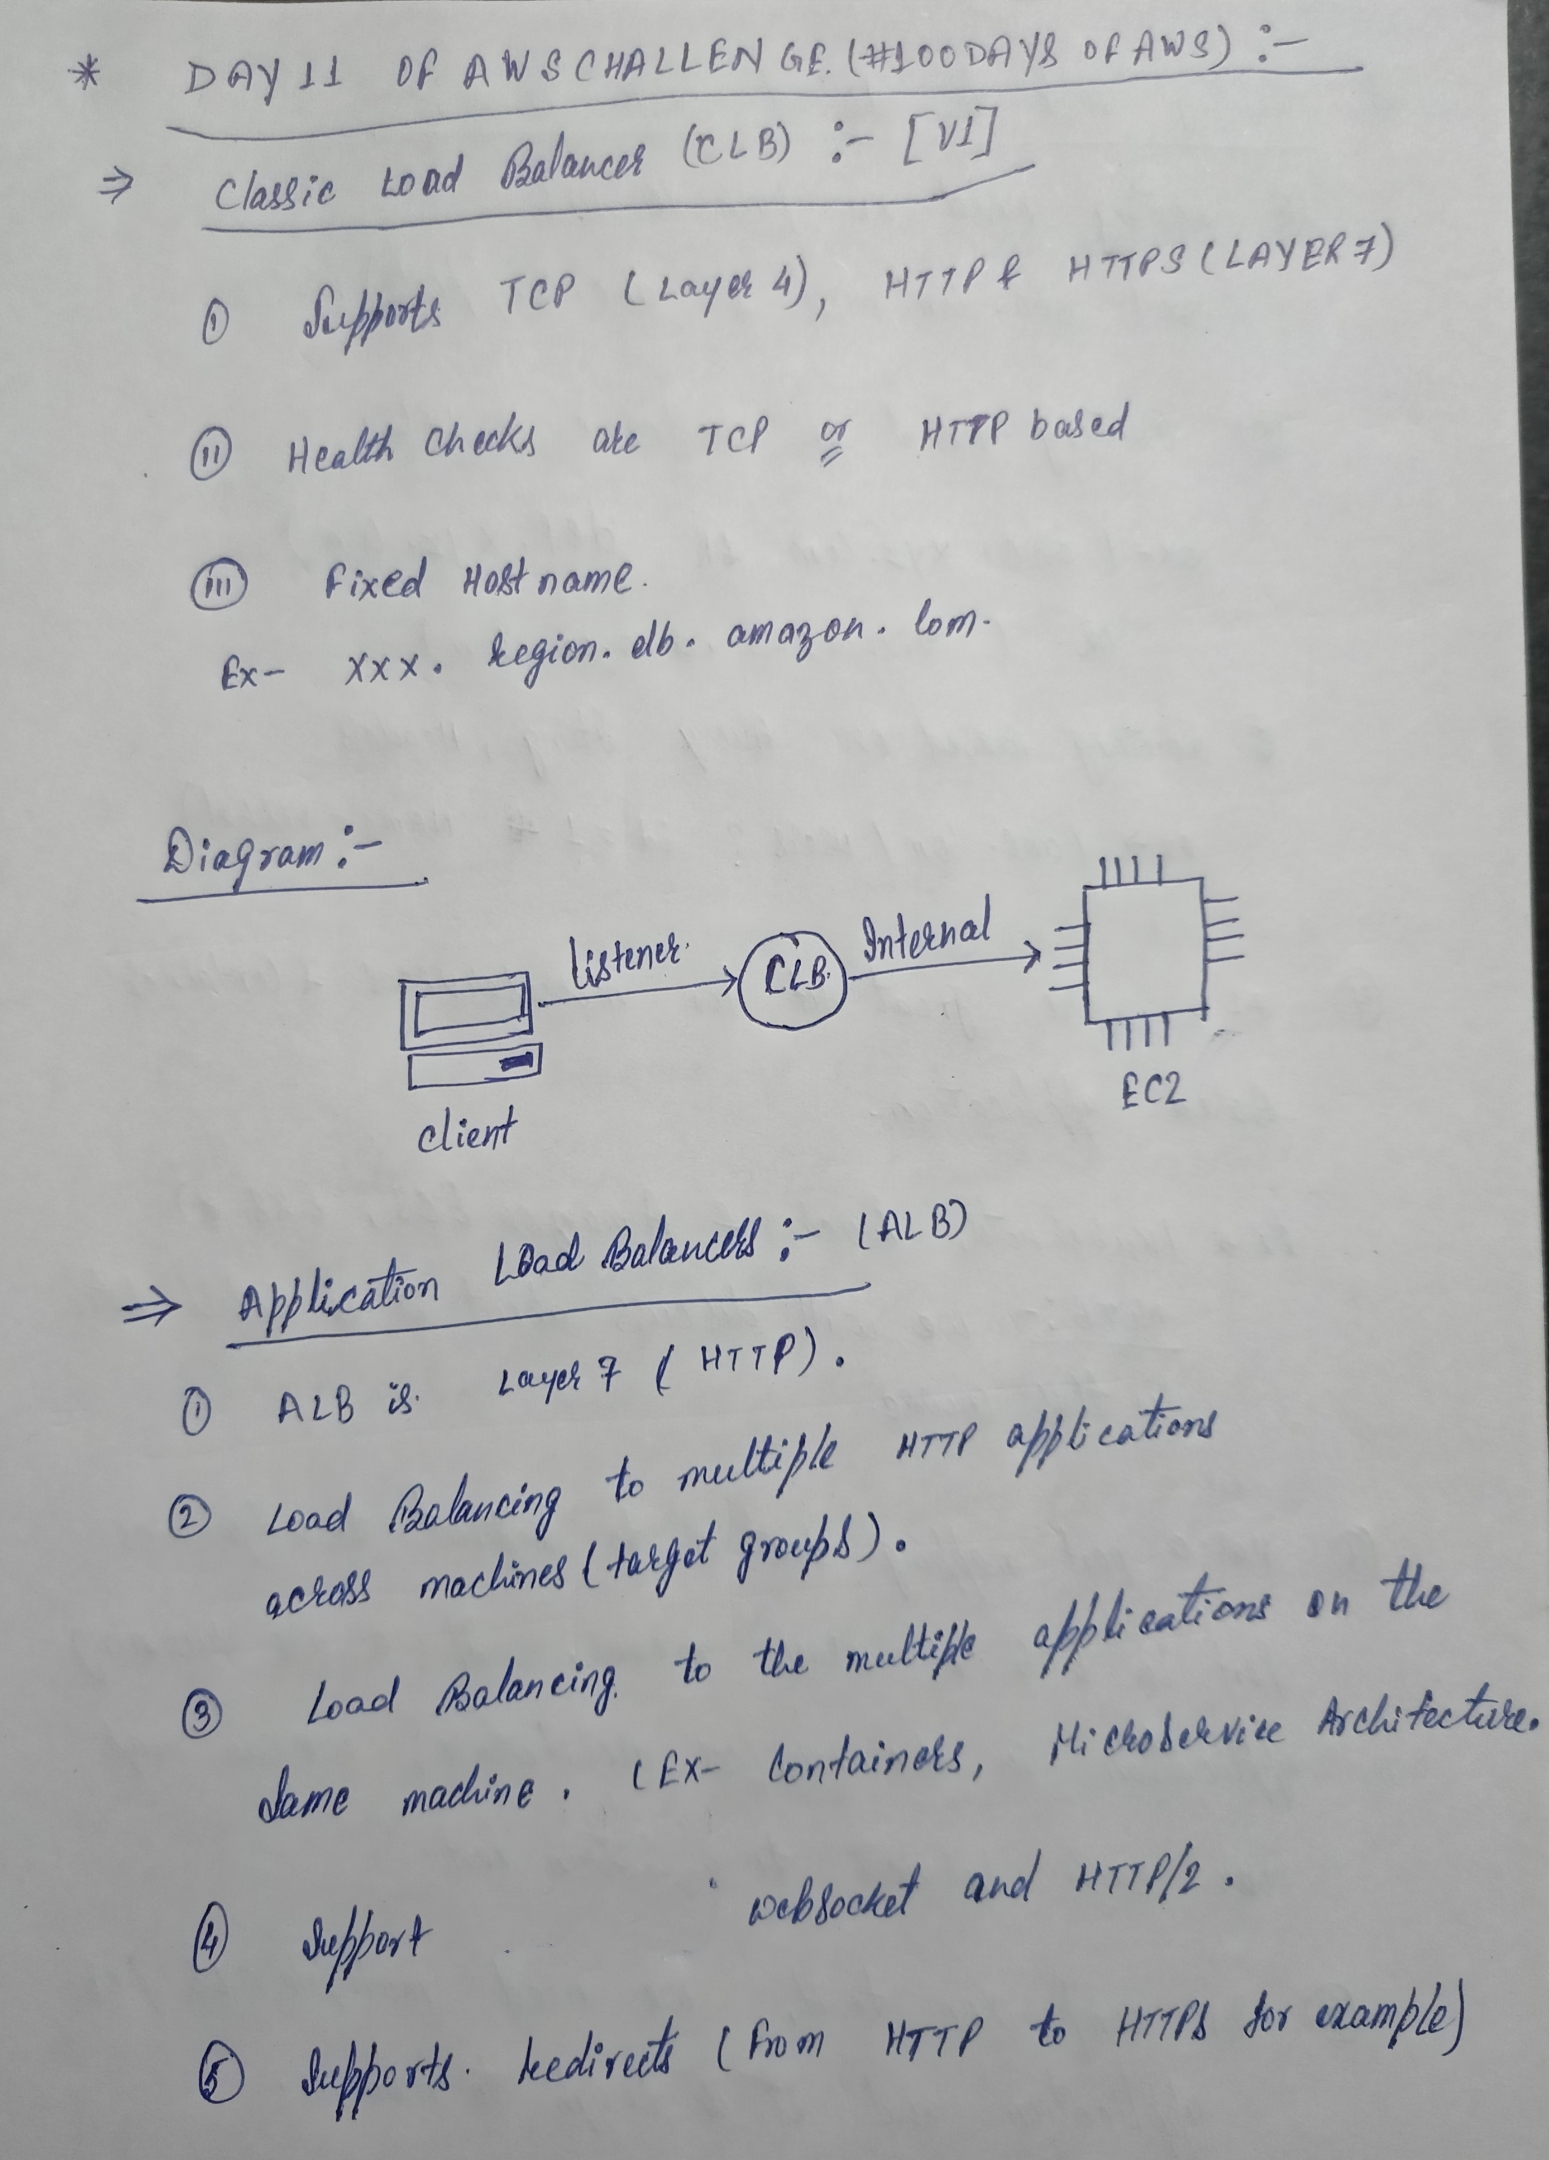 * DAY 11 OF AWS CHALLENGE. (#100DAYS OF AWS) :-
⇒ Classic Load Balancer (CLB) :- [V1]
(i) Supports TCP (Layer 4), HTTP & HTTPS (LAYER 7)
(ii) Health Checks are TCP or HTTP based
(iii) Fixed Hostname.
Ex- XXX. region. elb. amazon. com.
Diagram :-
listener.
CLB.
Internal
client
EC2
⇒ Application Load Balancers :- (ALB)
① ALB is. Layer 7 (HTTP).
② Load Balancing to multiple HTTP applications
across machines (target groups).
③ Load Balancing. to the multiple applications on the
same machine. (Ex- Containers, Microservice Architecture.
④ Support websocket and HTTP/2.
⑤ Supports. redirects (from HTTP to HTTPS for example)